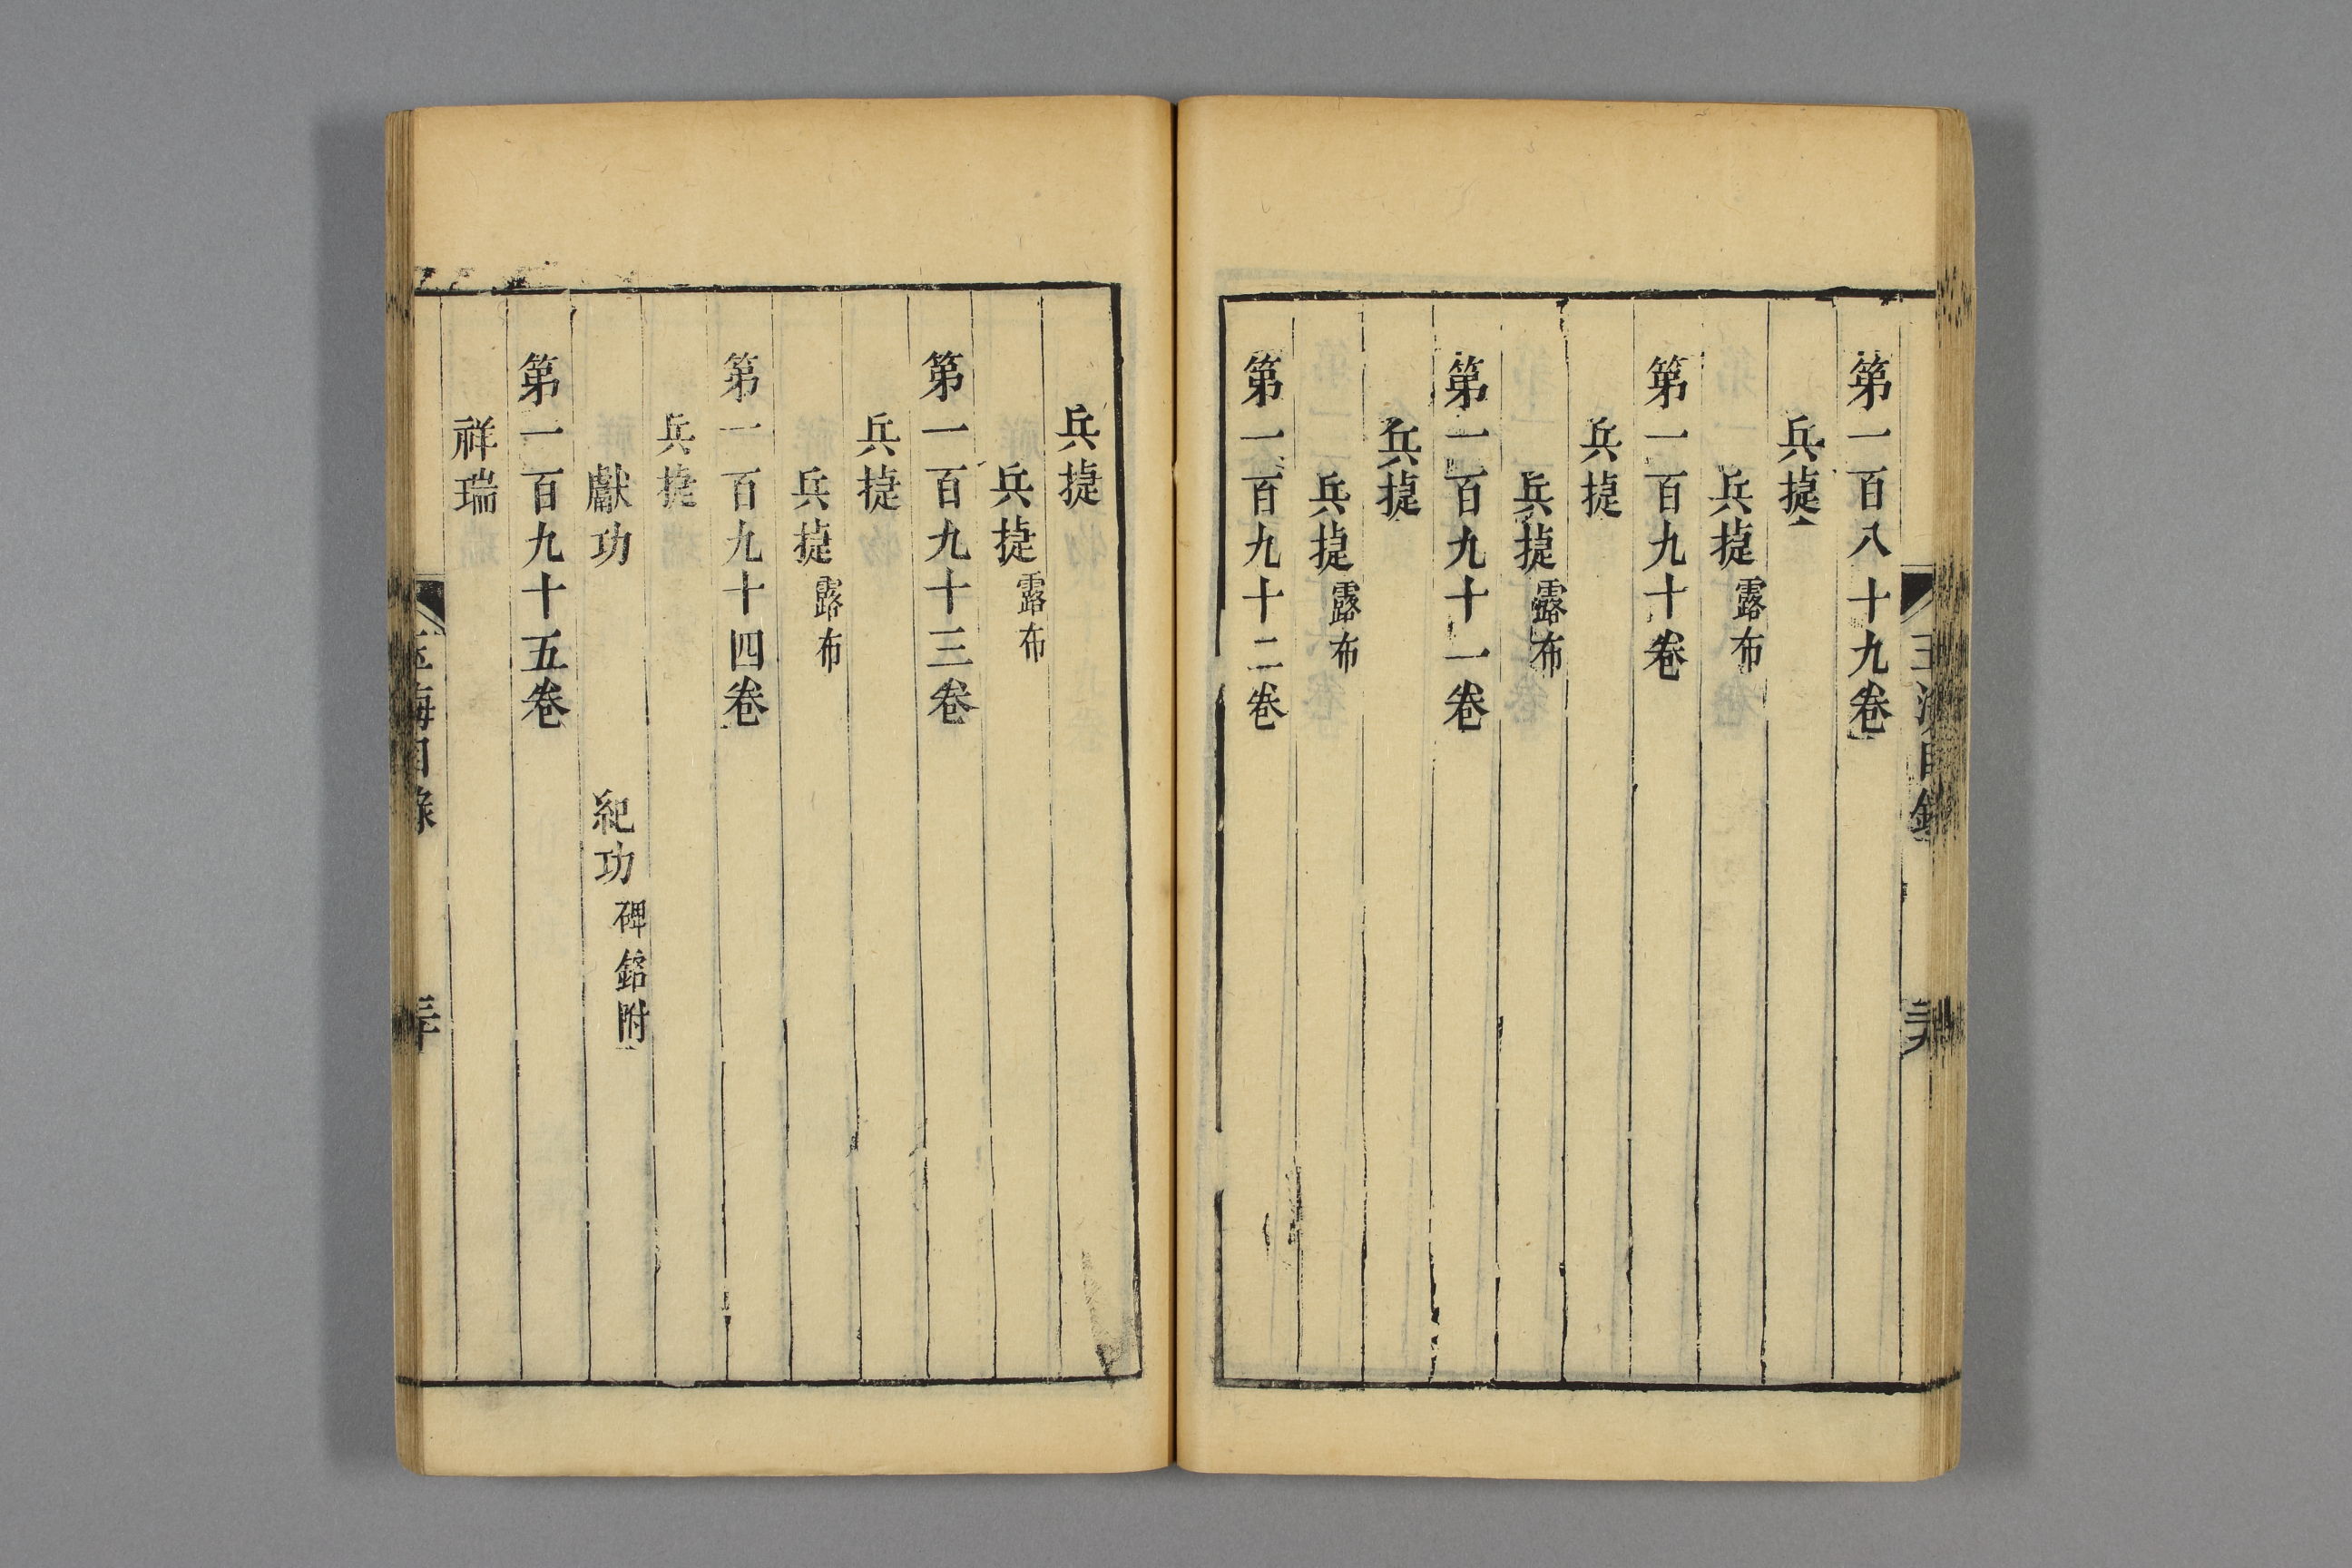 第一百八十九卷
兵捷
兵捷露布
第一百九十卷
兵捷
兵捷露布
第一百九十一卷
兵捷
兵捷露布
第一百九十二卷
兵捷
兵捷露布
第一百九十三卷
兵捷
兵捷露布
第一百九十四卷
兵捷
獻功 紀功碑銘附
第一百九十五卷
祥瑞
玉海目錄